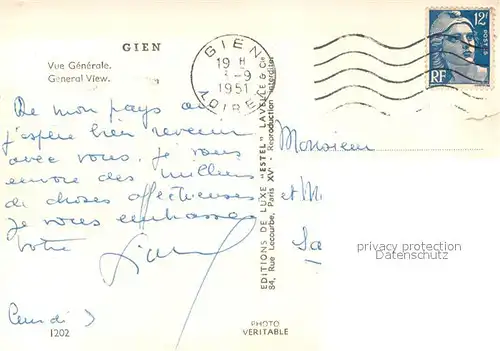 GIEN
Vue Générale.
General View.
GIEN
19 H
-9
1951
LOIRET
12F
POSTES
RF
De mon pays où
j'espère bien revenir
avec vous. Je vous
envoie des milliers
de choses affectueuses
Je vous embrasse
Votre
Lundi 3
1202
EDITIONS DE LUXE "ESTEL" LAVELLE & Cie
84, Rue Lecourbe, Paris XV° - Reproduction interdite
PHOTO
VERITABLE
Monsieur
et M
privacy protection
Datenschutz